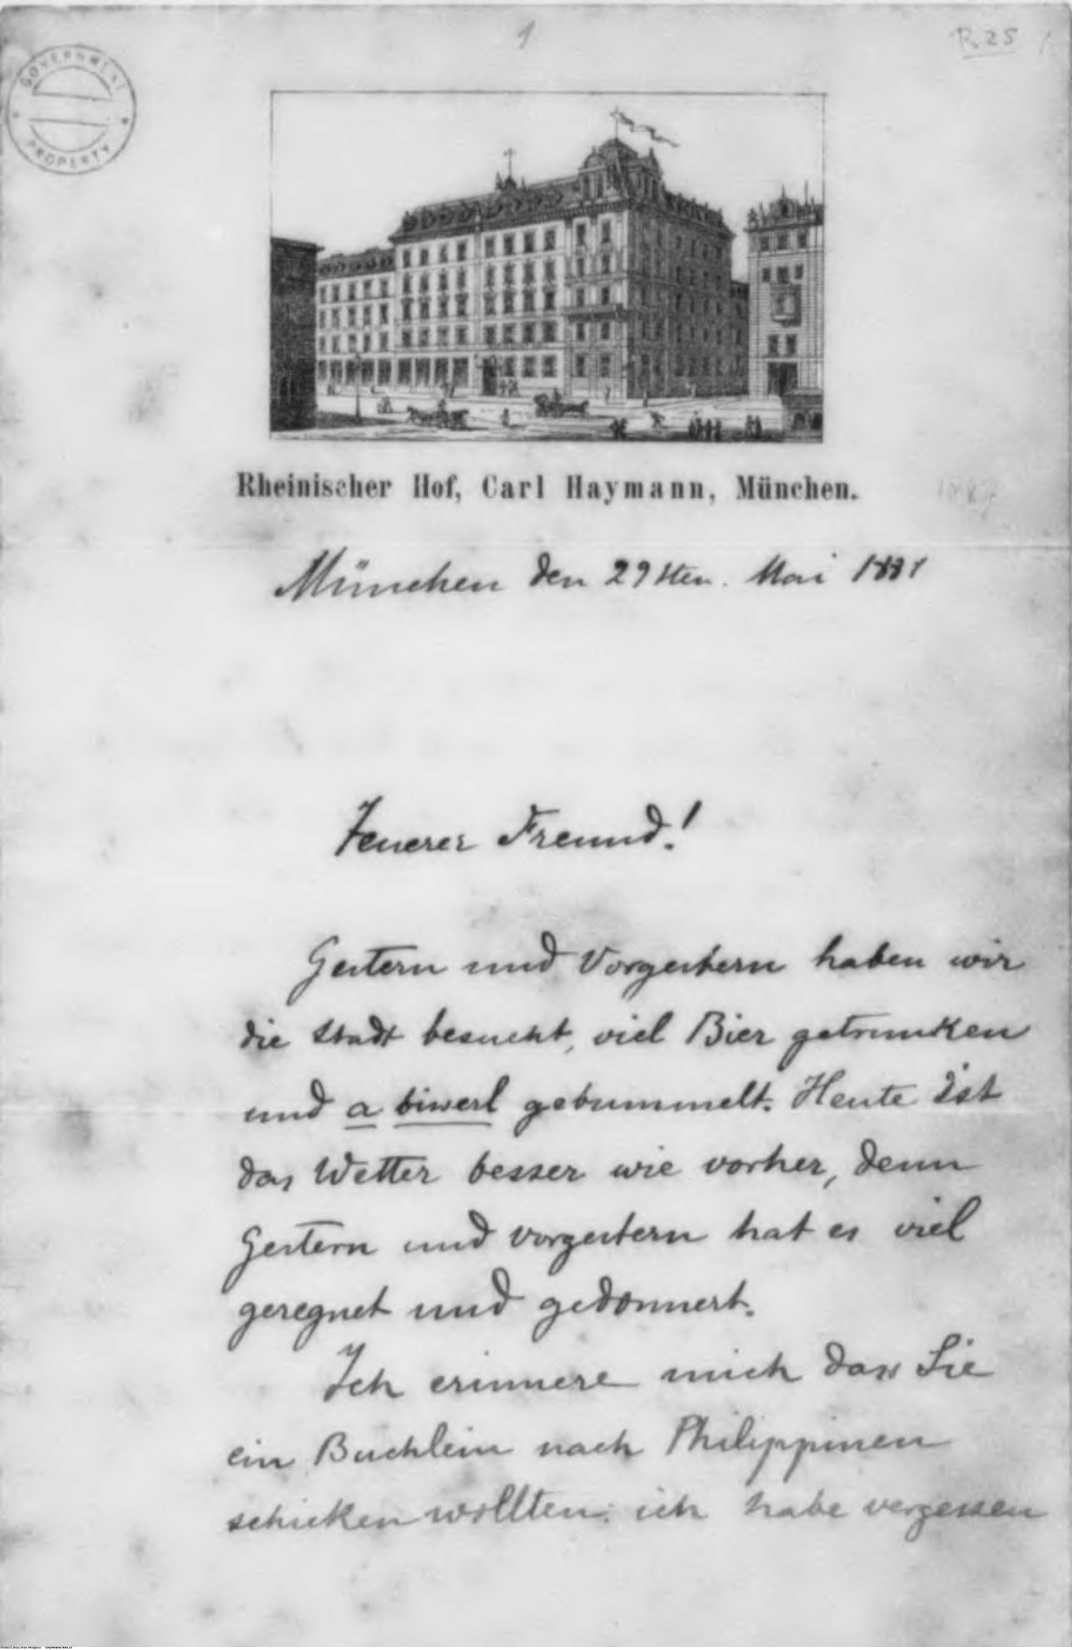 1
R 25
GOVERNMENT PROPERTY
Rheinischer Hof, Carl Haymann, München.
München den 29sten. Mai
Teuerer Freund!
Gestern und Vorgestern haben wir
die Stadt besucht, viel Bier getrunken
und a biwerl gebummelt. Heute ist
das Wetter besser wie vorher, denn
Gestern und vorgestern hat es viel
geregnet und gedonnert.
Ich erinnere mich dass Sie
ein Buchlein nach Philippinen
schicken wollten: ich habe vergessen